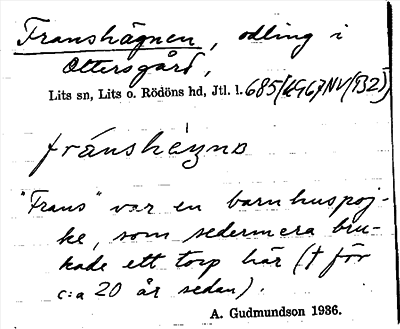 Franshägnen, odling i
Ottersgård,
Lits sn, Lits o. Rödöns hd, Jtl. l.
fránshègno
"Frans" var en barnhuspoj-
ke, som sedermera bru-
kade ett torp här († för
c:a 20 år sedan).
A. Gudmundson 1936.